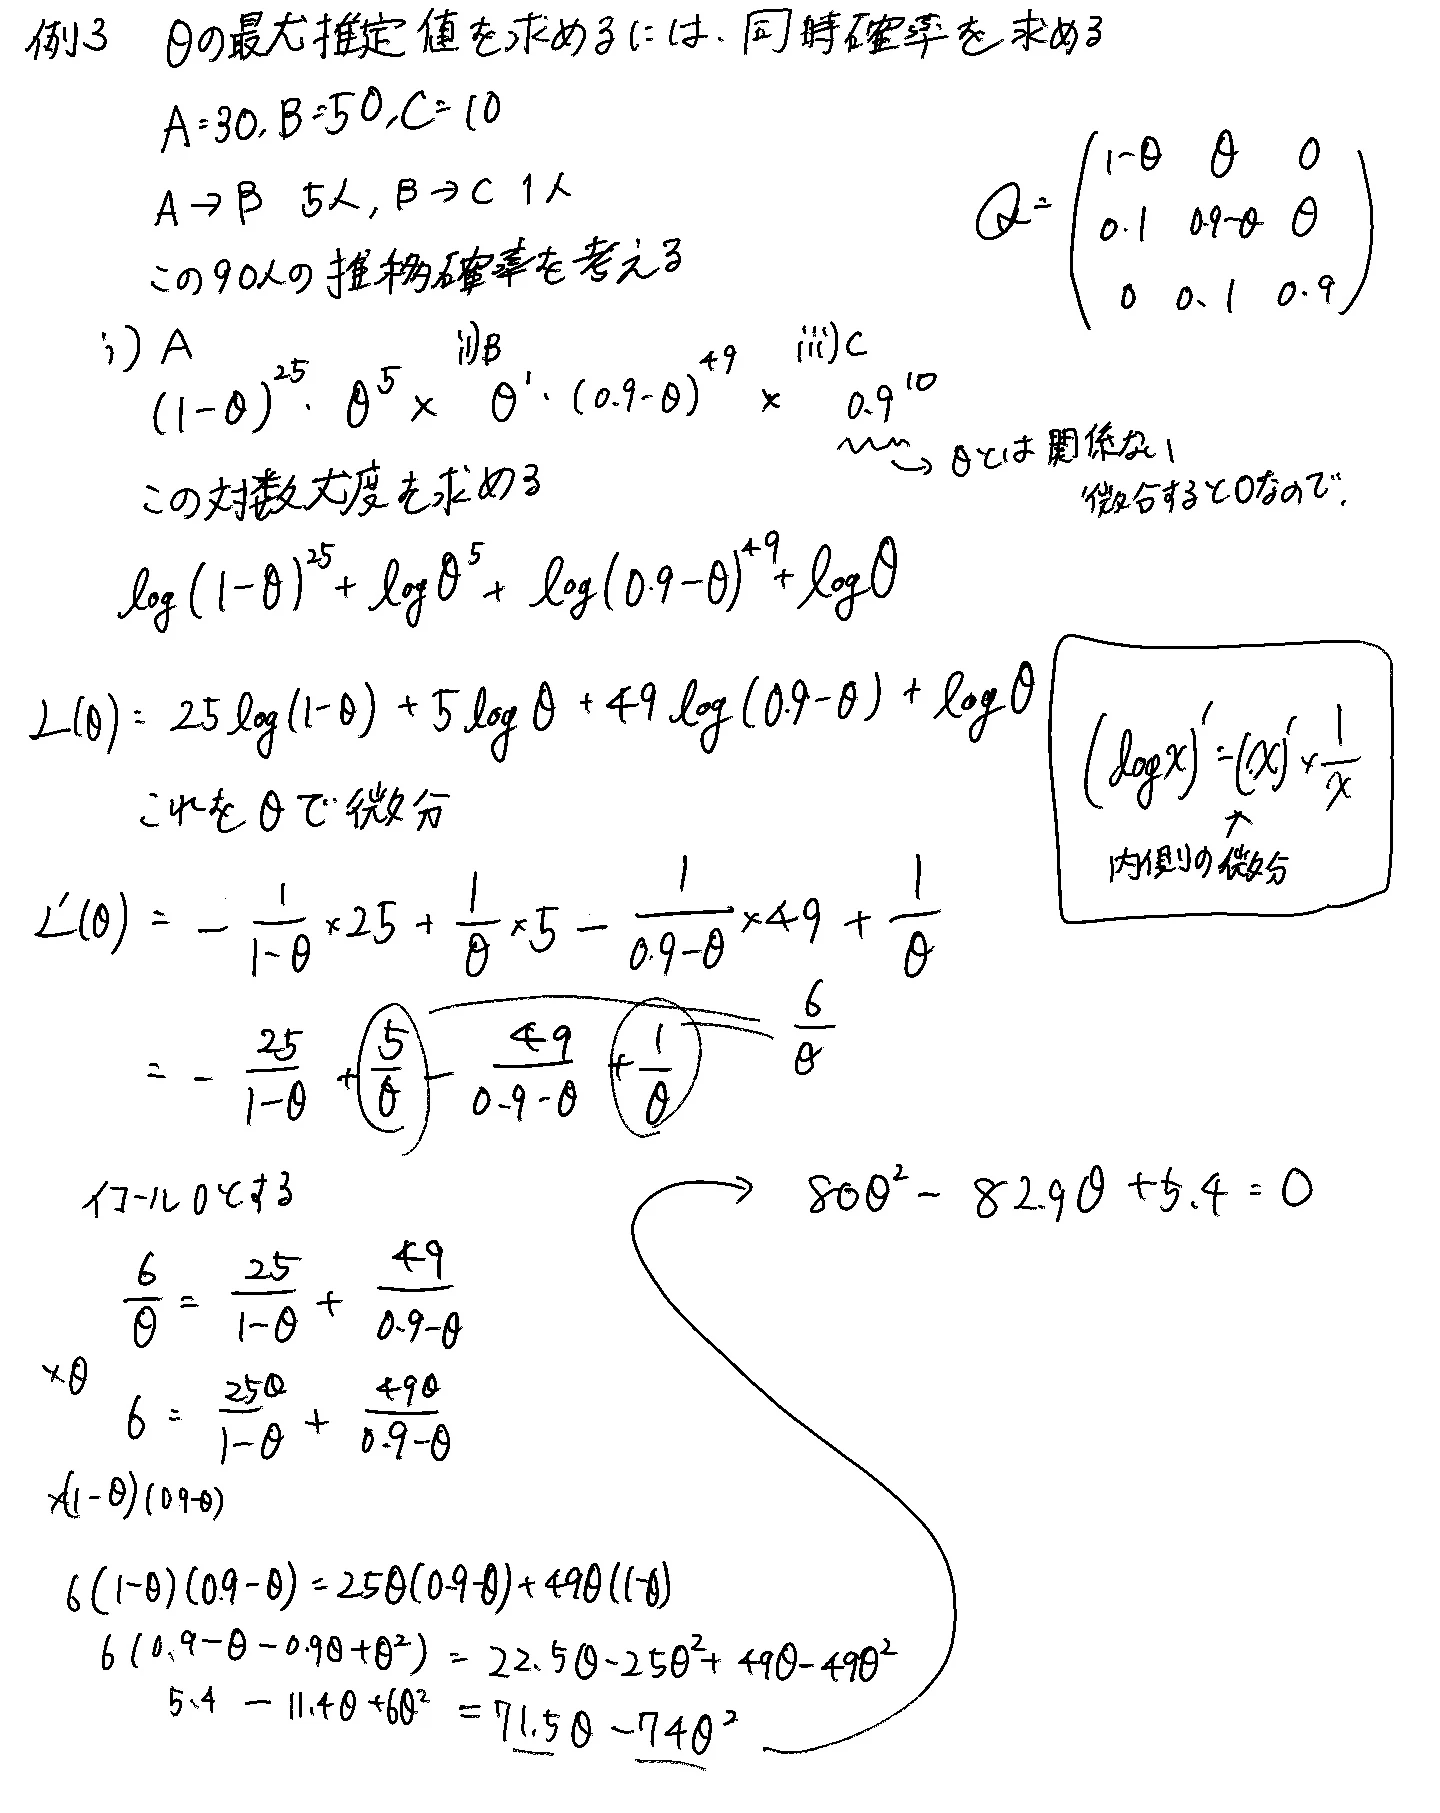 例3 θの最尤推定値を求めるには、同時確率を求める
A=30, B=50, C=10
A→B 5人, B→C 1人
この90人の推移確率を考える
Q = ( 1-θ θ 0
0.1 0.9-θ θ
0 0.1 0.9 )
i) A ii) B iii) C
(1-θ)^25・θ^5 × θ^1・(0.9-θ)^49 × 0.9^10
→ θとは関係ない
微分すると0なので、
この対数尤度を求める
log(1-θ)^25 + logθ^5 + log(0.9-θ)^49 + logθ
L(θ) = 25log(1-θ) + 5logθ + 49log(0.9-θ) + logθ
(logx)' = (x)' × 1/x
↑
内側の微分
これをθで微分
L'(θ) = - 1/(1-θ) ×25 + 1/θ ×5 - 1/(0.9-θ) ×49 + 1/θ
= - 25/(1-θ) + 5/θ - 49/(0.9-θ) + 1/θ 6/θ
イコール0とする
6/θ = 25/(1-θ) + 49/(0.9-θ)
×θ
6 = 25θ/(1-θ) + 49θ/(0.9-θ)
×(1-θ)(0.9-θ)
6(1-θ)(0.9-θ) = 25θ(0.9-θ) + 49θ(1-θ)
6(0.9-θ-0.9θ+θ²) = 22.5θ-25θ²+49θ-49θ²
5.4 - 11.4θ+6θ² = 71.5θ - 74θ²
→ 80θ² - 82.9θ + 5.4 = 0